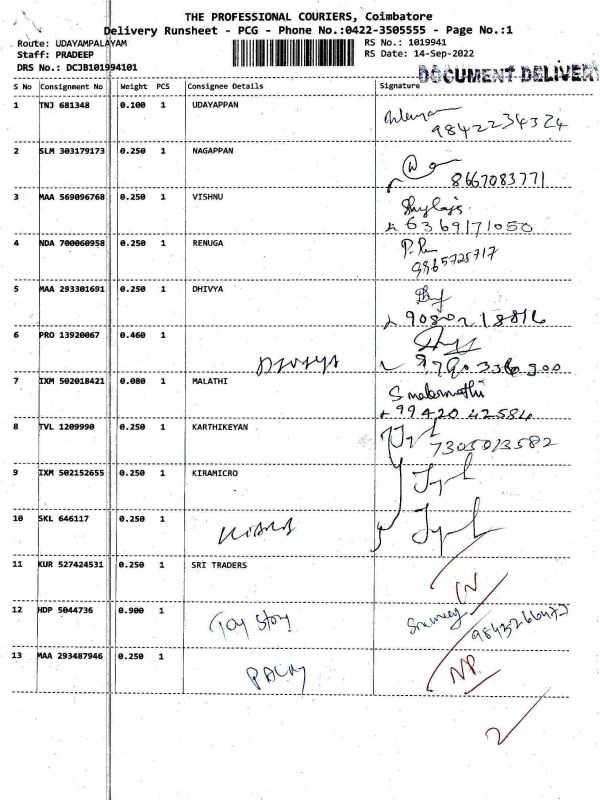 THE PROFESSIONAL COURIERS, Coimbatore
Delivery Runsheet - PCG - Phone No.:0422-3505555 - Page No.:1
Route: UDAYAMPALAYAM RS No.: 1019941
Staff: PRADEEP RS Date: 14-Sep-2022
DRS No.: DCJB101994101 DOCUMENT DELIVERY
S No Consignment No Weight PCS Consignee Details Signature
1 TNJ 681348 0.100 1 UDAYAPPAN
9842234324
2 SLM 303179173 0.250 1 NAGAPPAN
8667083771
3 MAA 569096768 0.250 1 VISHNU
6369171050
4 NDA 700060958 0.250 1 RENUGA
9965725717
5 MAA 293301691 0.250 1 DHIVYA
6 PRO 13920067 0.460 1
7 IXM 502018421 0.080 1 MALATHI
99420 42584
8 TVL 1209990 0.250 1 KARTHIKEYAN
7305013582
9 IXM 502152655 0.250 1 KIRAMICRO
10 SKL 646117 0.250 1
11 KUR 527424531 0.250 1 SRI TRADERS
12 HDP 5044736 0.900 1 Toy Story
13 MAA 293487946 0.250 1
2